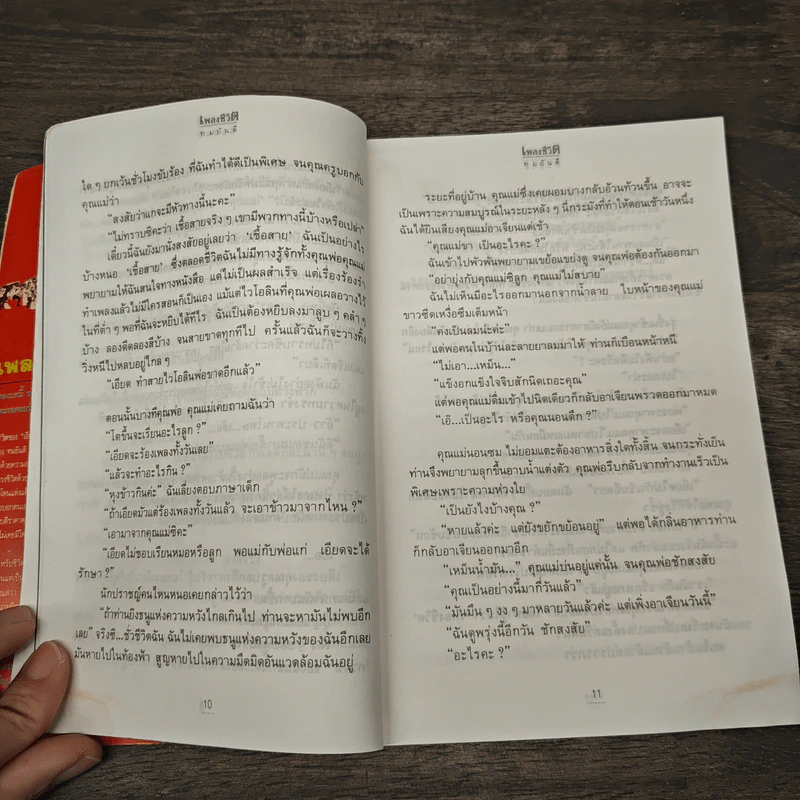 เพลงชีวิต
ทมยันตี
ใด ๆ ยกเว้นชั่วโมงขับร้อง ที่ฉันทำได้ดีเป็นพิเศษ จนคุณครูบอกกับ
คุณแม่ว่า
“สงสัยว่าแกจะมีหัวทางนี้นะคะ”
“ไม่ทราบซิคะว่า เชื้อสายจริง ๆ เขามีพวกทางนี้บ้างหรือเปล่า”
เดี๋ยวนี้ฉันยังมานั่งสงสัยอยู่เลยว่า ‘เชื้อสาย’ ฉันเป็นอย่างไร
บ้างหนอ ‘เชื้อสาย’ ซึ่งตลอดชีวิตฉันไม่มีทางรู้จักทั้งคุณพ่อคุณแม่
พยายามให้ฉันสนใจทางหนังสือ แต่ไม่เป็นผลสำเร็จ แต่เรื่องร้องรำ
ทำเพลงแล้วไม่มีใครสอนก็เป็นเอง แม้แต่ไวโอลินที่คุณพ่อเผลอวางไว้
ในที่ต่ำ ๆ พอที่ฉันจะหยิบได้ทีไร ฉันเป็นต้องหยิบลงมาลูบ ๆ คลำ ๆ
บ้าง ลองดีดลองสีบ้าง จนสายขาดทุกทีไป ครั้นแล้วฉันก็จะวางทิ้ง
วิ่งหนีไปหลบอยู่ไกล ๆ
“เอียด ทำสายไวโอลินพ่อขาดอีกแล้ว”
ตอนนั้นบางทีคุณพ่อ คุณแม่เคยถามฉันว่า
“โตขึ้นจะเรียนอะไรลูก ?”
“เอียดจะร้องเพลงทั้งวันเลย”
“แล้วจะทำอะไรกิน ?”
“หุงข้าวกินค่ะ” ฉันเลี่ยงตอบภาษาเด็ก
“ถ้าเอียดมัวแต่ร้องเพลงทั้งวันแล้ว จะเอาข้าวมาจากไหน ?”
“เอามาจากคุณแม่ซิคะ”
“เอียดไม่ชอบเรียนหมอหรือลูก พอแม่กับพ่อแก่ เอียดจะได้
รักษา ?”
นักปราชญ์คนไหนหนอเคยกล่าวไว้ว่า
“ถ้าท่านยิงธนูแห่งความหวังไกลเกินไป ท่านจะหามันไม่พบอีก
เลย” จริงซี...ชั่วชีวิตฉัน ฉันไม่เคยพบธนูแห่งความหวังของฉันอีกเลย
มันหายไปในท้องฟ้า สูญหายไปในความมืดมิดอันแวดล้อมฉันอยู่
10
เพลงชีวิต
ทมยันตี
ระยะที่อยู่บ้าน คุณแม่ซึ่งเคยผอมบางกลับอ้วนท้วนขึ้น อาจจะ
เป็นเพราะความสมบูรณ์ในระยะหลัง ๆ นี่กระมังที่ทำให้ตอนเช้าวันหนึ่ง
ฉันได้ยินเสียงคุณแม่อาเจียนแต่เช้า
“คุณแม่ขา เป็นอะไรคะ ?”
ฉันเข้าไปพัวพันพยายามเขย้อแขย่งดู จนคุณพ่อต้องกันออกมา
“อย่ายุ่งกับคุณแม่ซิลูก คุณแม่ไม่สบาย”
ฉันไม่เห็นมีอะไรออกมานอกจากน้ำลาย ใบหน้าของคุณแม่
ขาวซีดเหงื่อซึมเต็มหน้า
“คงเป็นลมน่ะค่ะ”
แต่พอคนในบ้านละลายยาลมมาให้ ท่านก็เบือนหน้าหนี
“ไม่เอา...เหม็น...”
“แข็งอกแข็งใจจิบสักนิดเถอะคุณ”
แต่พอคุณแม่ดื่มเข้าไปนิดเดียวก็กลับอาเจียนพรวดออกมาหมด
“เอ๊...เป็นอะไร หรือคุณนอนดึก ?”
คุณแม่นอนซม ไม่ยอมแตะต้องอาหารสิ่งใดทั้งสิ้น จนกระทั่งเย็น
ท่านจึงพยายามลุกขึ้นอาบน้ำแต่งตัว คุณพ่อรีบกลับจากทำงานเร็วเป็น
พิเศษเพราะความห่วงใย
“เป็นยังไงบ้างคุณ ?”
“หายแล้วค่ะ แต่ยังขยักขย้อนอยู่” แต่พอได้กลิ่นอาหารท่าน
ก็กลับอาเจียนออกมาอีก
“เหม็นน้ำมัน...” คุณแม่บ่นอยู่แค่นั้น จนคุณพ่อชักสงสัย
“คุณเป็นอย่างนี้มากี่วันแล้ว”
“มันมึน ๆ งง ๆ มาหลายวันแล้วค่ะ แต่เพิ่งอาเจียนวันนี้”
“ฉันดูพรุ่งนี้อีกวัน ชักสงสัย”
“อะไรคะ ?”
11